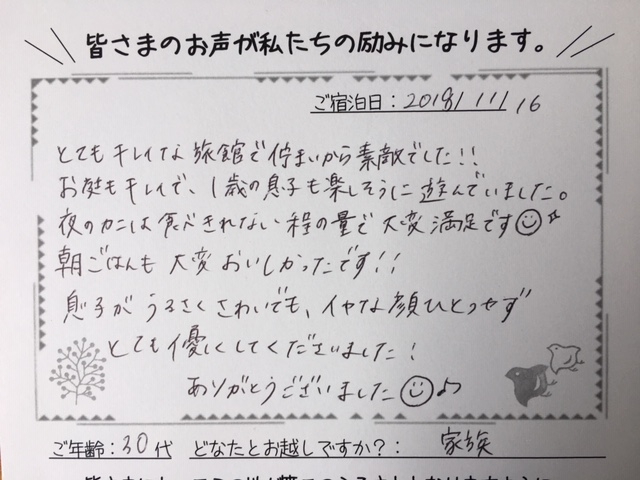 皆さまのお声が私たちの励みになります。
ご宿泊日:2018/11/16
とてもキレイな旅館で佇まいから素敵でした!!
お庭もキレイで、1歳の息子も楽しそうに遊んでいました。
夜のカニは食べきれない程の量で大変満足です☺☆
朝ごはんも大変おいしかったです!!
息子がうるさくさわいでも、イヤな顔ひとつせず
とても優しくしてくださいました!
ありがとうございました☺♪
ご年齢:30代 どなたとお越しですか?: 家族